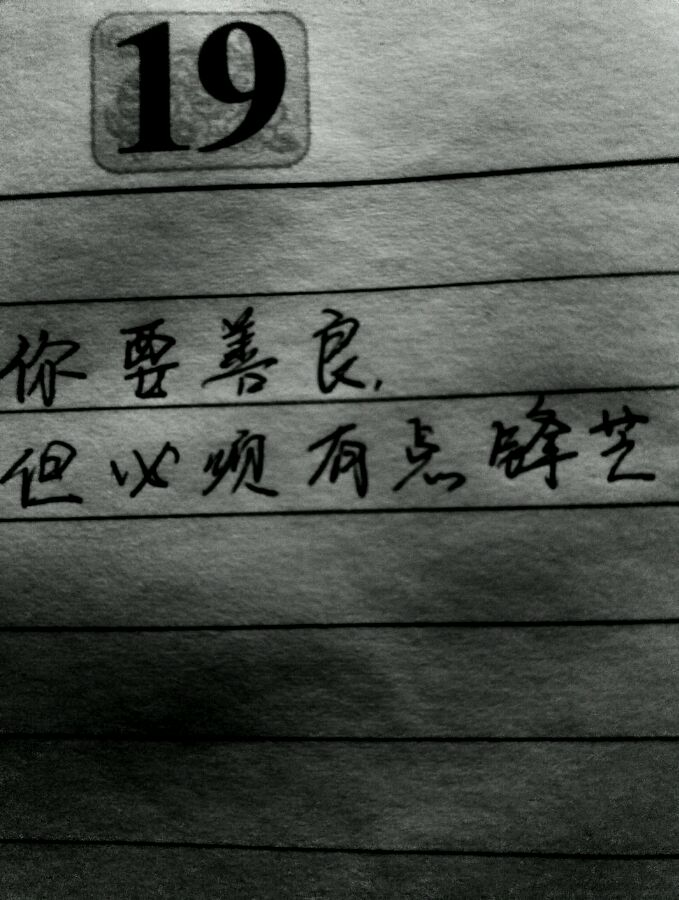 19
你要善良,
但必须有点锋芝